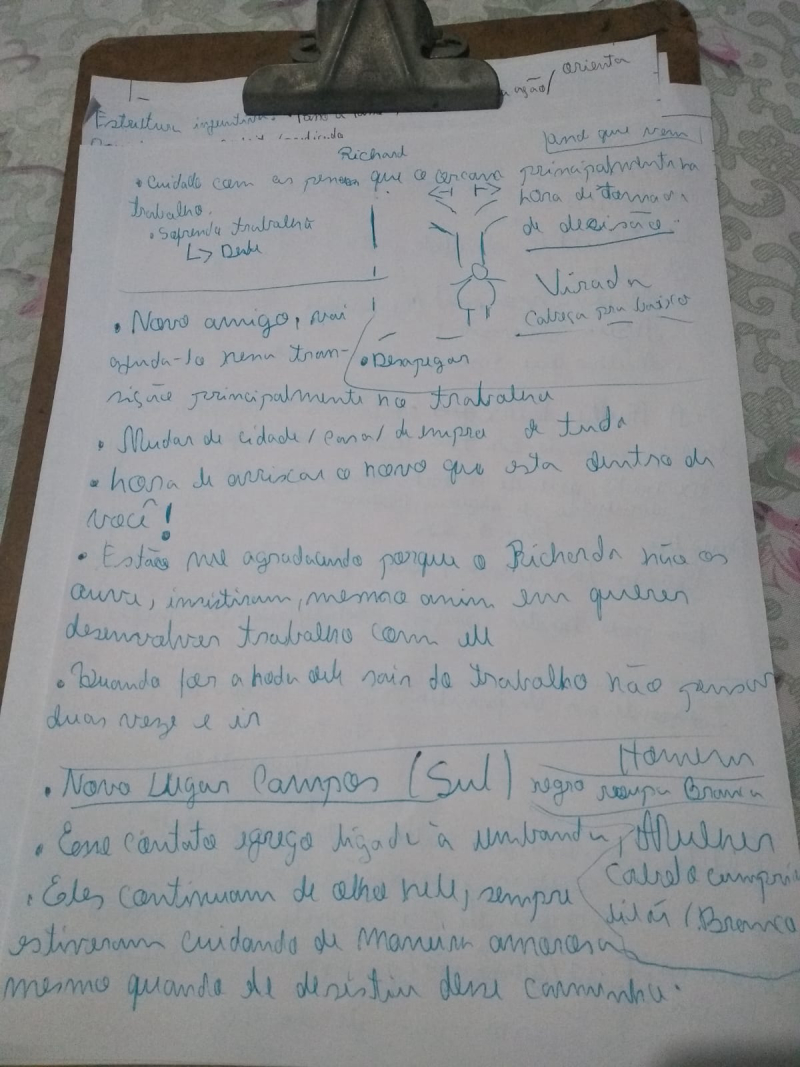 orienta
ação/
Estrutura
Richard
• Cuidado com as pessoas que o cercava
trabalho.
• Saprenda trabalha
↳ Dente
que vem
principalmente na
hora de tomar
de decisão.
Virada
Cabeça pra baixo
• Desapegar
• Novo amigo, vai
ajuda-lo nessa tran-
sição principalmente no trabalho
• Mudar de cidade/casa/de empre de tudo
• hora de arriscar o novo que esta dentro de
você!
• Estão me agradacendo porque o Richard não os
ouve, insistiram, mesmo assim em querer
desenvolver trabalho com ele
• Quando for a hora dele sair do trabalho não pensar
duas veze e ir
• Novo Lugar Campos (Sul)
Homem
negro roupa Branca
• Esse contato egrego ligado à umbanda,
Mulher
Cabelo cumprid
lilás/Branco
• Eles continuam de olho nele, sempre
estiveram cuidando de maneira amorosa
mesmo quando ele desistiu desse caminho.